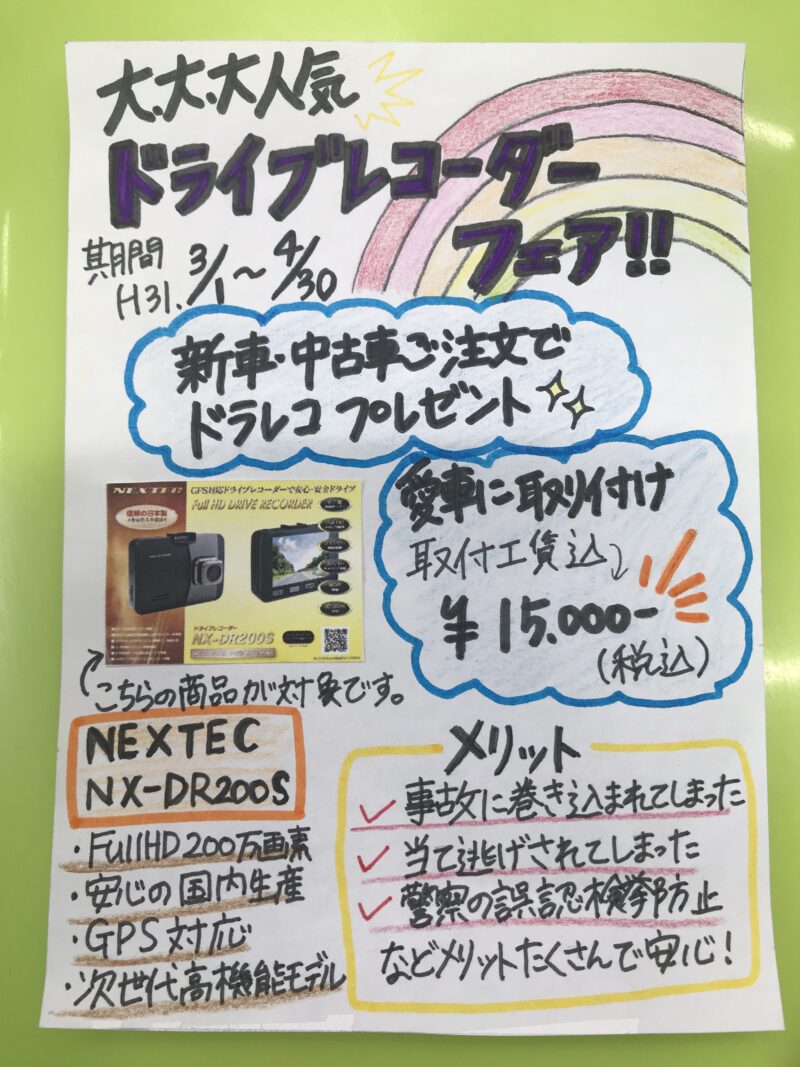 大・大・大人気
ドライブレコーダー
フェア!!
期間
H31. 3/1〜4/30
新車・中古車ご注文で
ドラレコ プレゼント
愛車に取り付け
取付工賃込
¥15.000-
(税込)
NEXTEC
GPS対応ドライブレコーダーで安心・安全ドライブ
Full HD DRIVE RECORDER
信頼の日本製
ドライブレコーダー
NX-DR200S
こちらの商品が対象です。
NEXTEC
NX-DR200S
・FullHD200万画素
・安心の国内生産
・GPS対応
・次世代高機能モデル
メリット
✓事故に巻き込まれてしまった
✓当て逃げされてしまった
✓警察の誤認検挙防止
などメリットたくさんで安心!